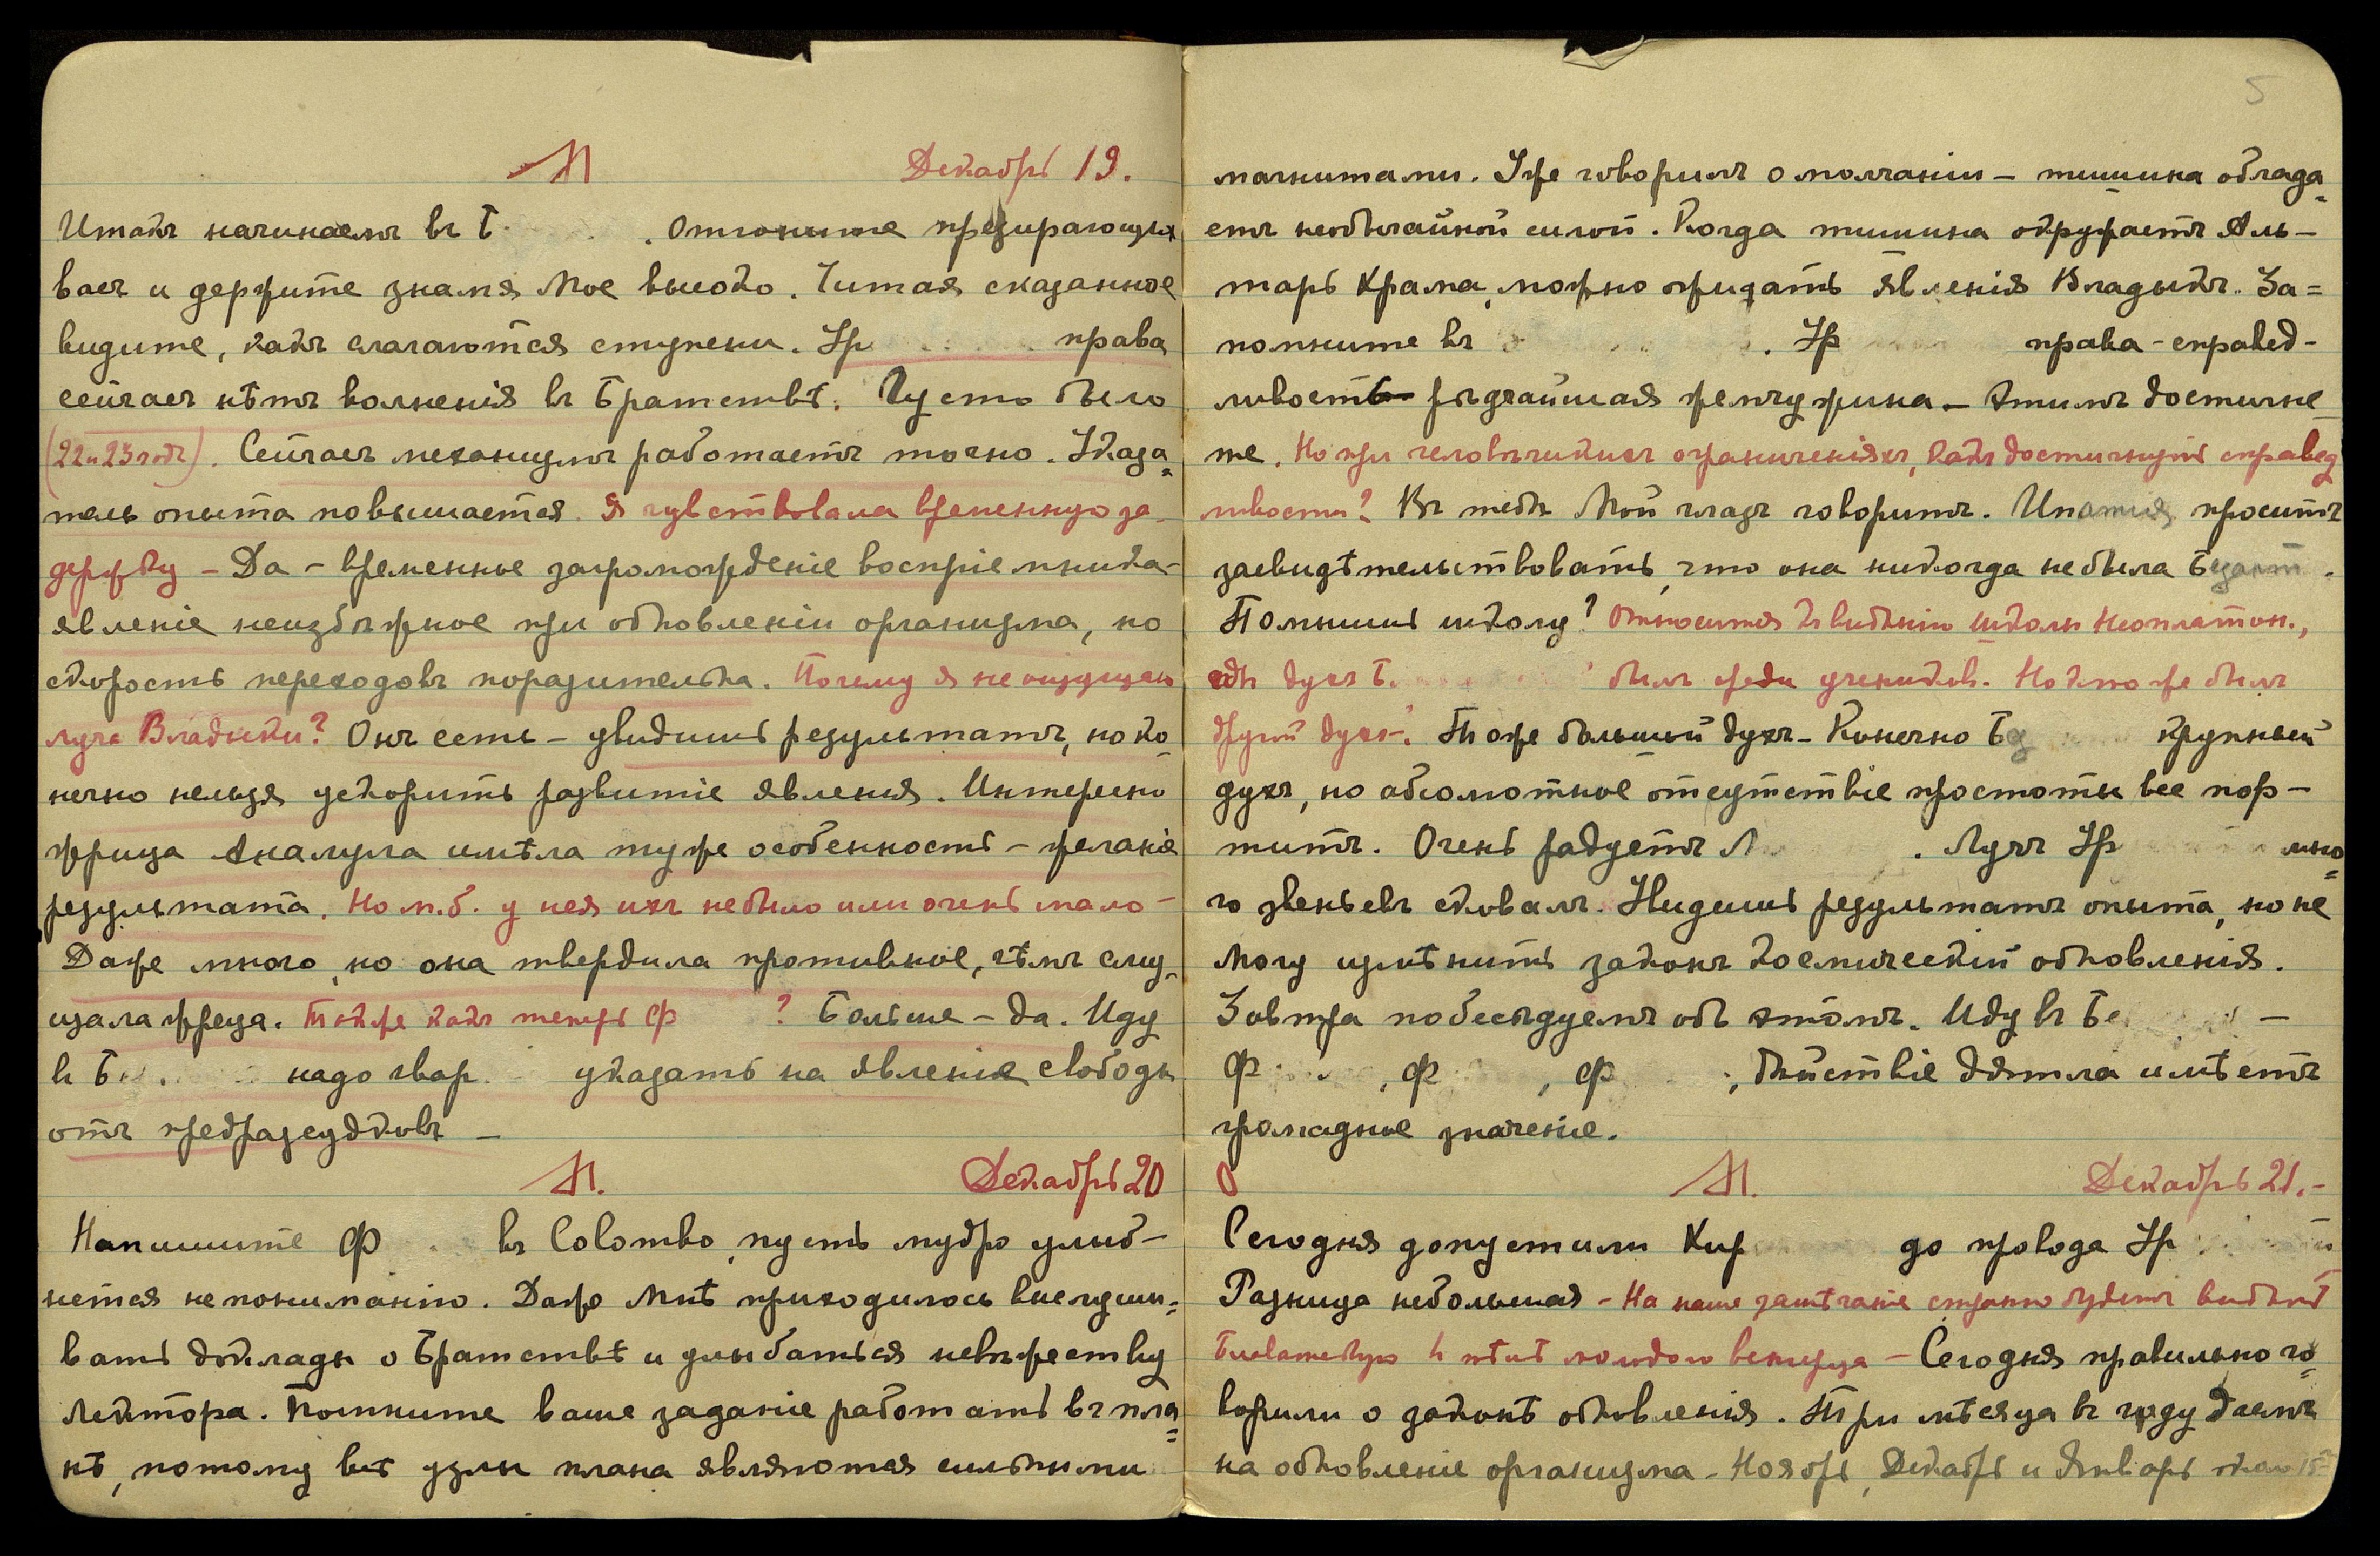 М Декабрь 19.
Итакъ начинаемъ въ Б . Отгоните презирающихъ
васъ и держите знамя Мое высоко. Читая сказанное
видите, какъ слагаются ступени. Ур права
сейчасъ нѣтъ волненія въ Братствѣ. Густо было
(22 и 23 годъ). Сейчасъ механизмъ работаетъ точно. Указа=
тель опыта повышается. Я чувствовала временную за-
держку – Да – временное загроможденіе воспріемника –
явленіе неизбѣжное при обновленіи организма, но
скорость переходовъ поразительна. Почему я не ощущаю
луча Владыки? Онъ есть – увидишь результатъ, но ко-
нечно нельзя ускорить развитіе явленія. Интересно
жрица Аналула имѣла туже особенность – желаніе
результата. Но м.б. у нея ихъ не было или очень мало –
Даже много, но она твердила противное, чѣмъ сму-
щала жреца. Также какъ теперь Ф ? Больше – да. Иду
въ Б надо указать на явленіе свободы
отъ предразсудковъ –
М. Декабрь 20
Напишите Ф въ Colombo, пусть мудро улыб-
нется непониманію. Даже Мнѣ приходилось выслуши=
вать доклады о Братствѣ и улыбаться невѣжеству
лектора. Помните ваше заданіе работать въ пла=
нѣ, потому всѣ узлы плана являются сильными
5
магнитами. Уже говорилъ о молчаніи – тишина облада=
етъ необычайной силой. Когда тишина окружаетъ Аль-
тарь Храма, можно ожидать явленія Владыкъ. За=
помните въ . Ур права – справед-
ливость рѣдчайшая жемчужина – этимъ достигне
те. Но при человѣческихъ ограниченіяхъ, какъ достигнуть справед
ливости? Въ тебѣ Мой гласъ говоритъ. Ипатія проситъ
засвидѣтельствовать, что она никогда не была Безант.
Помнишь школу? Относится къ видѣнію школы Неоплатон.,
гдѣ духъ Б былъ среди учениковъ. Но кто же былъ
другой духъ? Тоже большой духъ – Конечно Бе крупный
духъ, но абсолютное отсутствіе простоты все пор-
титъ. Очень радуетъ Л . Лучъ Ур мно=
го звеньевъ сковалъ. Увидишь результатъ опыта, но не
могу измѣнить законъ космическій обновленія.
Завтра побесѣдуемъ объ этомъ. Иду въ Бе –
Ф , Ф , Ф ; дѣйствіе дятла имѣетъ
громадное значеніе.
М. Декабрь 21.–
Сегодня допустили Кир до провода Ур
Разница небольшая – На наше замѣчаніе странно будетъ видѣть
Блаватскую въ тѣлѣ молодого венгерца – Сегодня правильно го=
ворили о законѣ обновленія. Три мѣсяца въ году даемъ
на обновленіе организма – Ноябрь, Декабрь и Январь